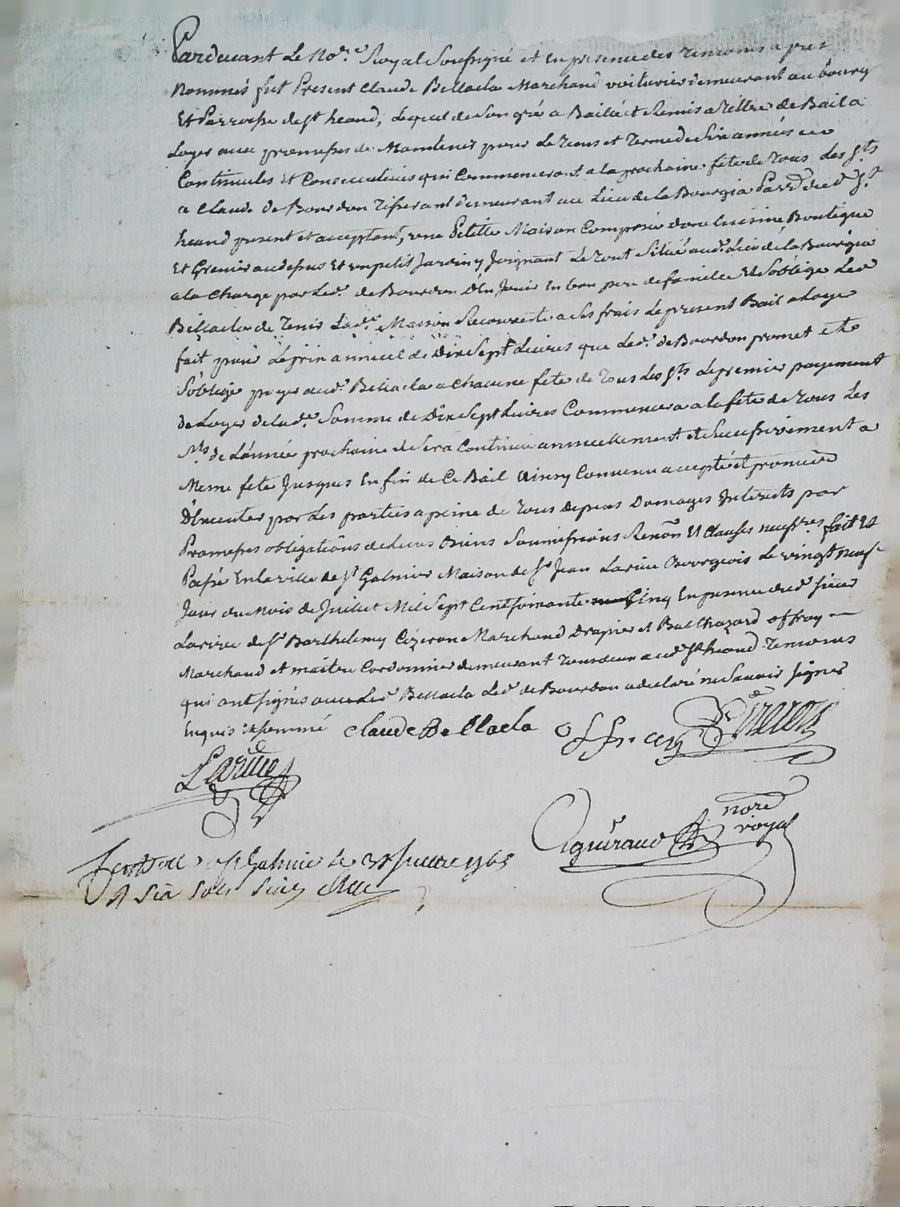 Pardevant Le No.re Royal Soussigné et En presence des Temoins apres
Nommés fut Present Claude Bellacla Marchand voiturier demeurant au bourg
Et Parroisse de St heand, Lequel de son gré a Baillé et Remis a Tittre de Bail a
Loyer aux promesses de Maintenir pour Le Tems et Terme de Six années
Continuelles Et Consecutives qui Commenceront a la prochaine fete de Tous Les Sts
a Claude de Bourdon Tisserant demeurant au Lieu de la Bourgia Parsse dud. St
heand present et acceptant, une Petitte Maison Composée d'une Cuisine Boutique
Et Grenier au dessus Et un petit Jardin y Joignant Le Tout Situé aud. Lieu de la Bourgia
a la Charge par Led. de Bourdon D'En Jouir En bon pere de famille Et S'oblige Led
Bellacla de Tenir Lad. Maison Recouverte a Ses frais Le present Bail a Loyer
fait pour Le prix annuel de Dix Sept Livres que Led. de Bourdon promet et
S'oblige payer aud. Bellacla a Chacune fete de Tous Les Sts Le premier payement
de Loyer de Lad. Somme de Dix Sept Livres Commencera a la fete de Tous Les
Sts de L'année prochaine et Sera Continué annuellement et Successivement a
Meme fete Jusques En fin de Ce Bail Ainsy Convenu accepté et promis
D'Executer par Les parties a peine de Tous Depens Domages Interets par
Promesses obligations de Leurs Biens Soumissions Renon Et Clauses necssres fait Et
Passé En la ville de St Galmier Maison de Sr Jean Larive Bourgeois Le vingt neuf
Jour du Mois de Juillet Mil Sept Cent Soixante Cinq En presence dud. Sieur
Larive de Sr Barthelemy Cizeron Marchand Drapier et Balthazard offray
Marchand et maitre Cordonnier demeurant Tous deux aud. St heand Temoins
qui ont signés avec Led. Bellacla Led. de Bourdon a declaré ne Savoir Signer
Enquis et Sommé Claude Bellacla offray
Larive
nore
royal
a St Galmier Le 31 Juillet 1765